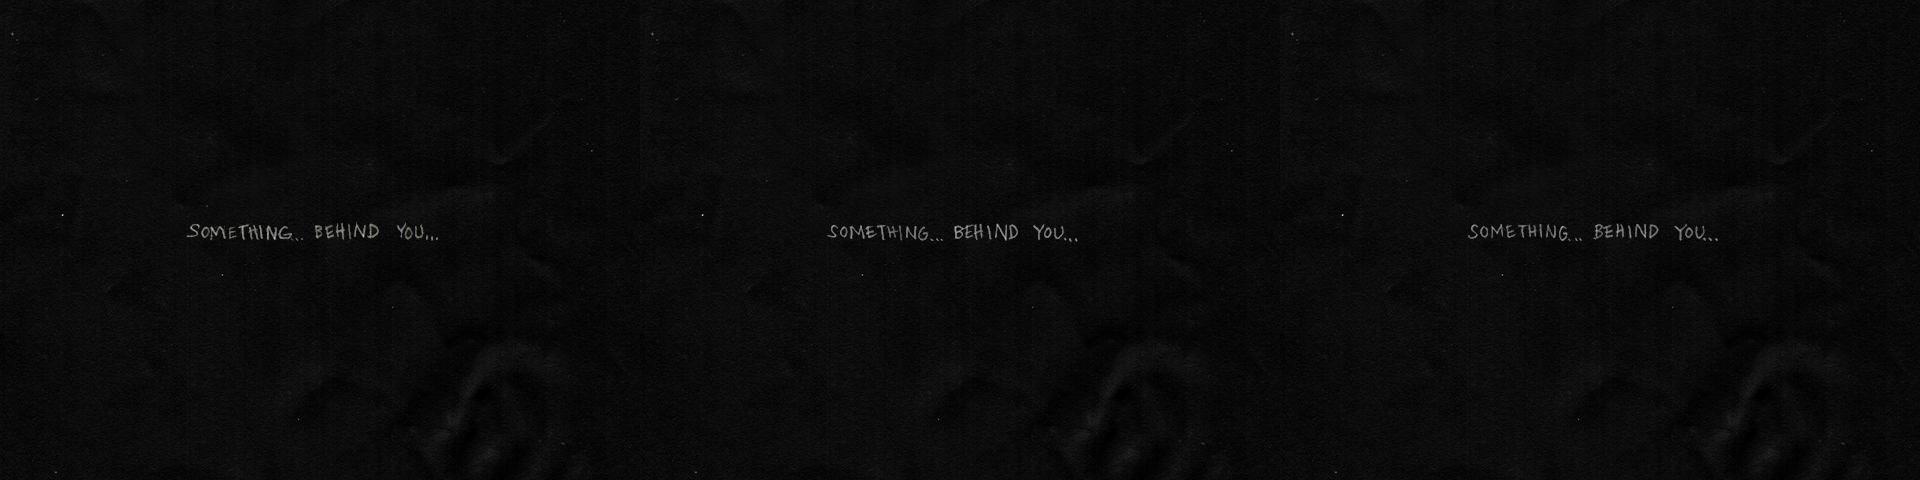 SOMETHING... BEHIND YOU...
SOMETHING... BEHIND YOU...
SOMETHING... BEHIND YOU...